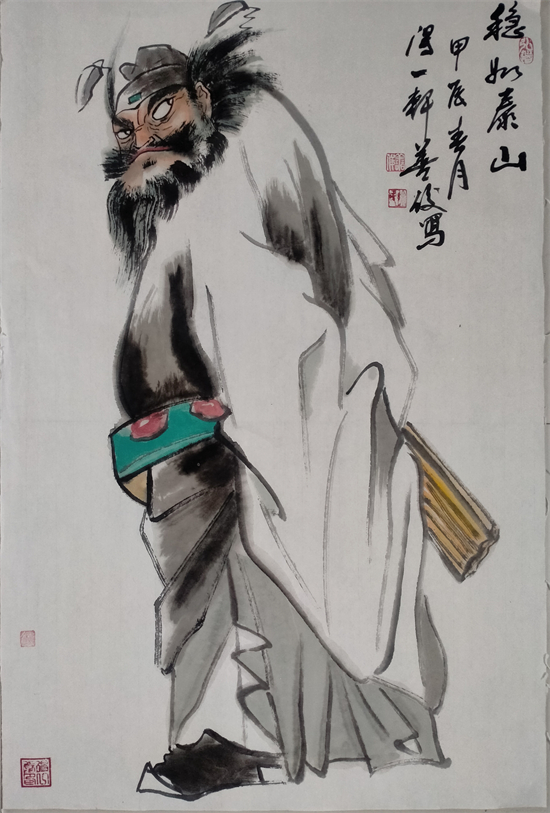 稳如泰山
甲辰春月
得一轩善写